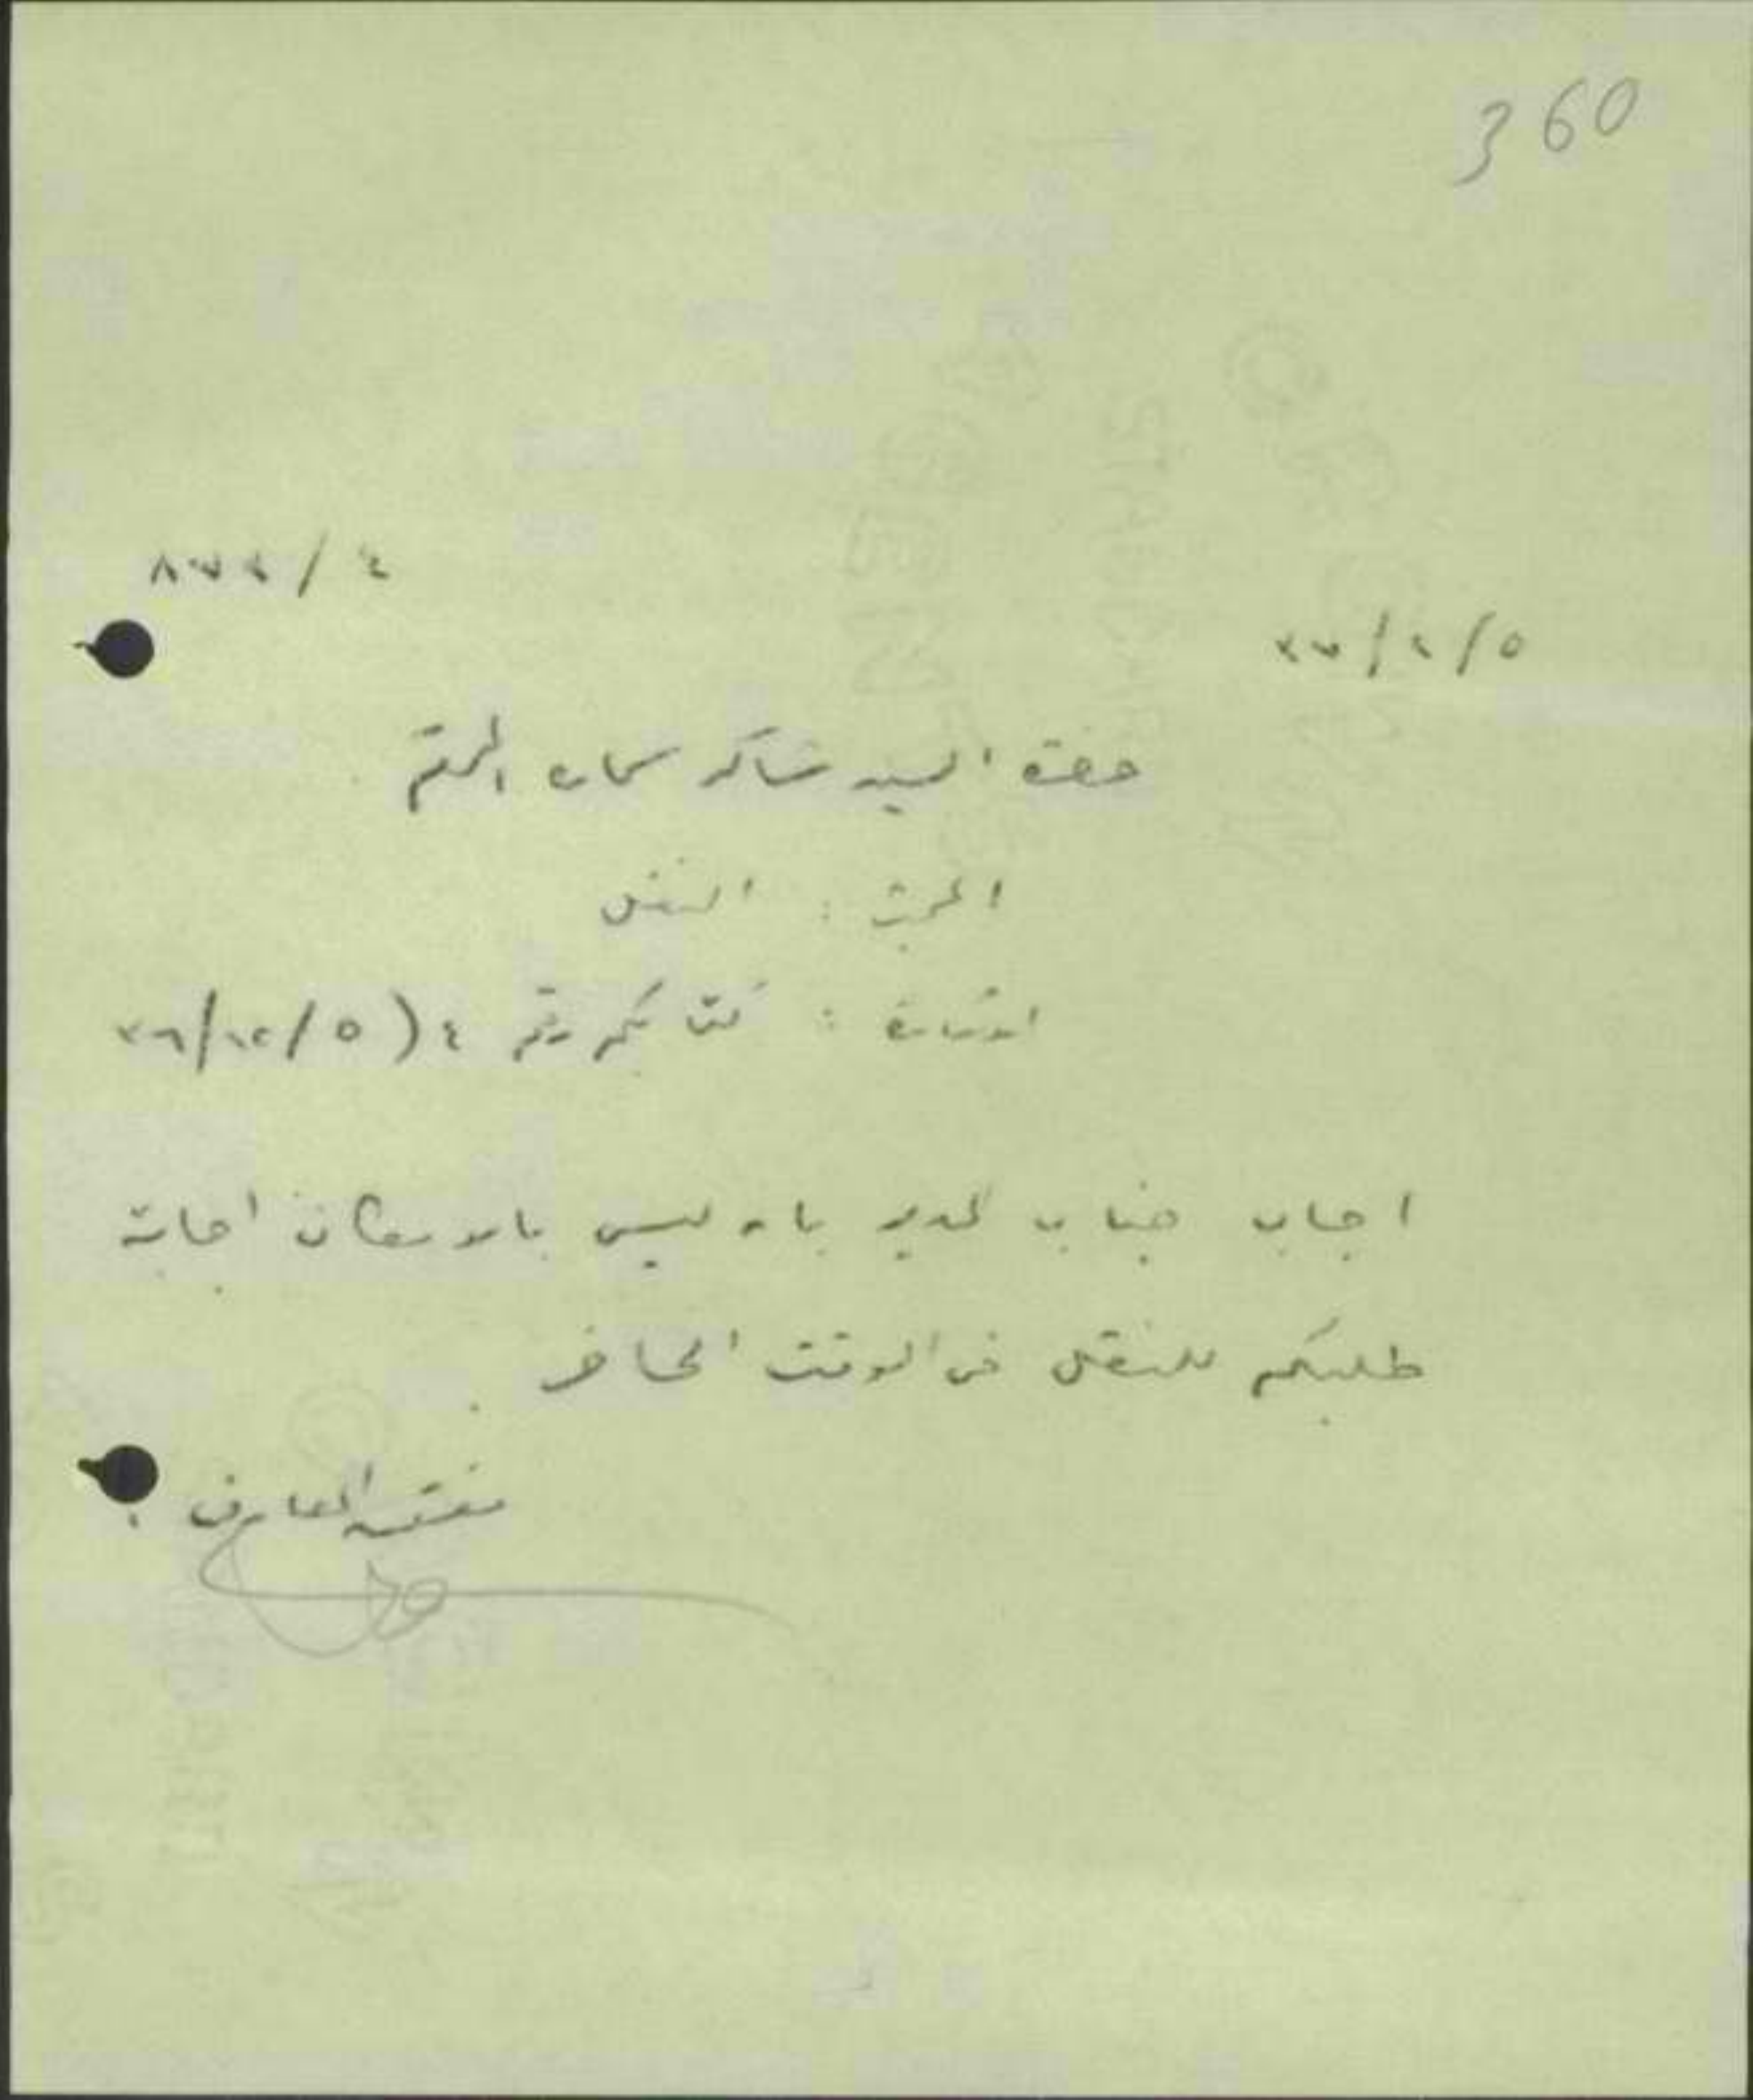 360
٨٧٣/٤
٣٧/١/٥
حضرة السيد شاكر سماره المحترم
المبحث : النقل
اشارة : كتابكم رقم ٤ ( ٣٦/١٢/٥
اجاب جناب المدير بانه ليس بالامكان اجابة
طلبكم للنقل في الوقت الحاضر .
مفتش المعارف